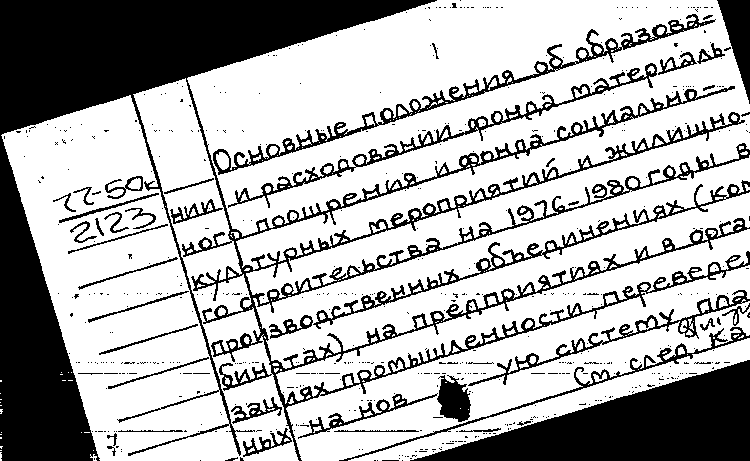 Основные положения об образова-
77-50к
2123
нии и расходовании фонда материаль-
ного поощрения и фонда социально-
культурных мероприятий и жилищно-
го строительства на 1976-1980 годы в
производственных объединениях (ком
бинатах), на предприятиях и в орга
зациях промышленности, переведен
ных на нов ую систему пла
См. след. ка